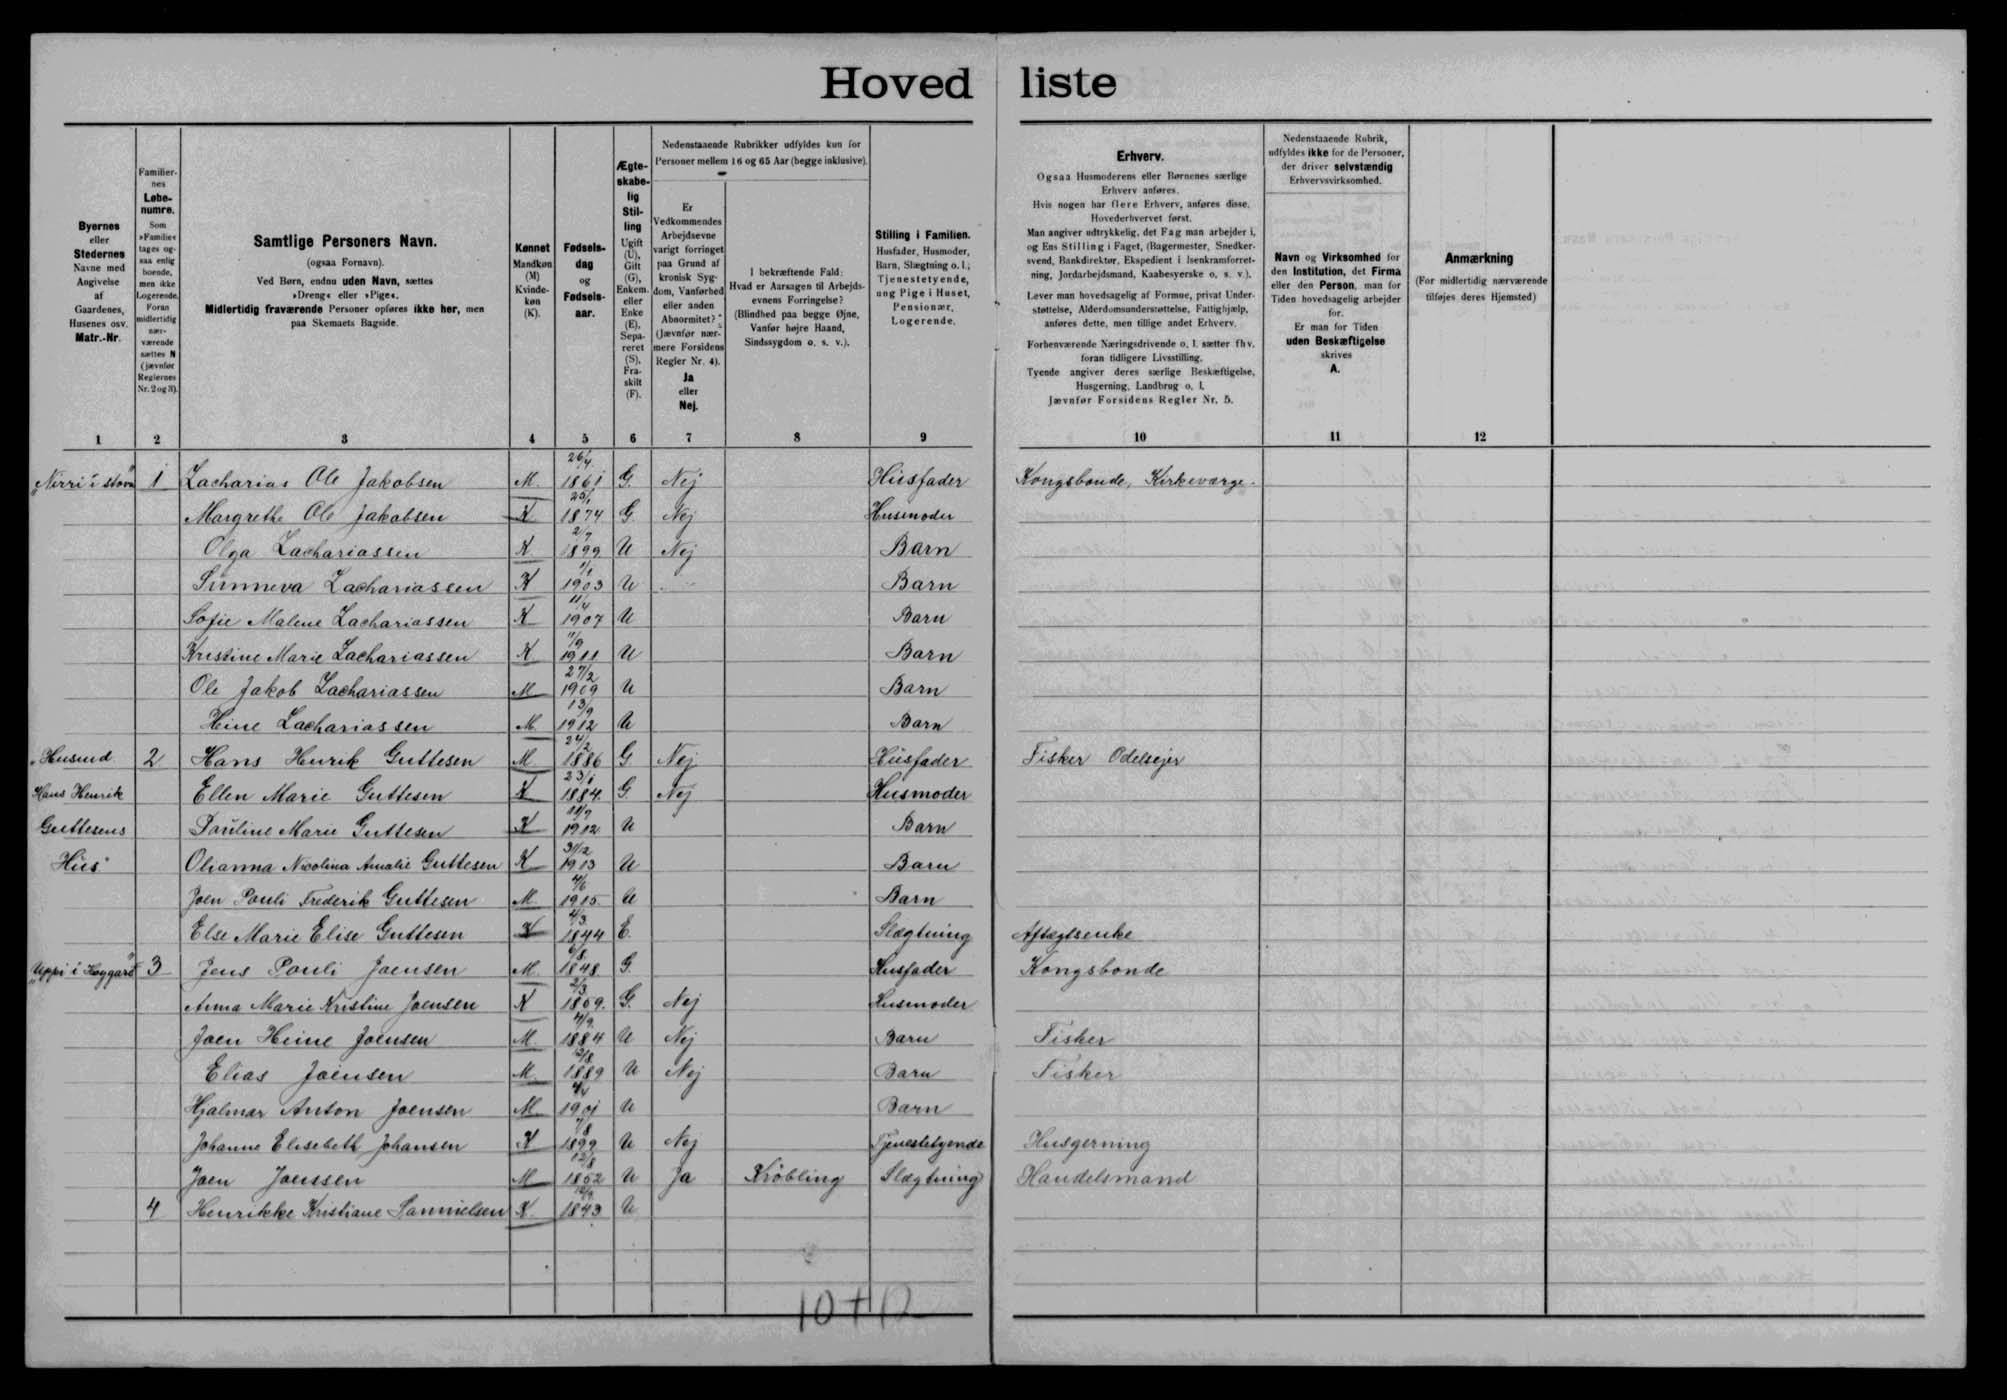 Hovedliste
Byernes
eller
Stedernes
Navne med
Angivelse
af
Gaardenes,
Husenes osv.
Matr.-Nr.
Familier-
nes
Løbe-
numre.
Som
»Familie«
tages og-
saa enlig
boende,
men ikke
Logerende.
Foran
midlertidig
nær-
værende
sættes N
(jævnfør
Reglernes
Nr. 2 og 3).
Samtlige Personers Navn.
(ogsaa Fornavn).
Ved Børn, endnu uden Navn, sættes
»Dreng« eller »Pige«.
Midlertidig fraværende Personer opføres ikke her, men
paa Skemaets Bagside.
Kønnet
Mandkøn
(M)
Kvinde-
køn
(K).
Fødsels-
dag
og
Fødsels-
aar.
Ægte-
skabe-
lig
Stil-
ling
Ugift
(U),
Gift
(G),
Enkem.
eller
Enke
(E),
Sepa-
reret
(S),
Fra-
skilt
(F).
Nedenstaaende Rubrikker udfyldes kun for
Personer mellem 16 og 65 Aar (begge inklusive).
Er
Vedkommendes
Arbejdsevne
varigt forringet
paa Grund af
kronisk Syg-
dom, Vanførhed
eller anden
Abnormitet?
(Jævnfør nær-
mere Forsidens
Regler Nr. 4).
Ja
eller
Nej.
I bekræftende Fald:
Hvad er Aarsagen til Arbejds-
evnens Forringelse?
(Blindhed paa begge Øjne,
Vanfør højre Haand,
Sindssygdom o. s. v.).
Stilling i Familien.
Husfader, Husmoder,
Barn, Slægtning o. l.;
Tjenestetyende,
ung Pige i Huset,
Pensionær,
Logerende.
Erhverv.
Ogsaa Husmoderens eller Børnenes særlige
Erhverv anføres.
Hvis nogen har flere Erhverv, anføres disse,
Hovederhvervet først.
Man angiver udtrykkelig, det Fag man arbejder i,
og Ens Stilling i Faget, (Bagermester, Snedker-
svend, Bankdirektør, Ekspedient i Isenkramforret-
ning, Jordarbejdsmand, Kaabesyerske o. s. v.).
Lever man hovedsagelig af Formue, privat Under-
støttelse, Alderdomsunderstøttelse, Fattighjælp,
anføres dette, men tillige andet Erhverv.
Forhenværende Næringsdrivende o. l. sætter fhv.
foran tidligere Livsstilling.
Tyende angiver deres særlige Beskæftigelse,
Husgerning, Landbrug o. l.
Jævnfør Forsidens Regler Nr. 5.
Nedenstaaende Rubrik,
udfyldes ikke for de Personer,
der driver selvstændig
Erhvervsvirksomhed.
Navn og Virksomhed for
den Institution, det Firma
eller den Person, man for
Tiden hovedsagelig arbejder
for.
Er man for Tiden
uden Beskæftigelse
skrives
A.
Anmærkning
(For midlertidig nærværende
tilføjes deres Hjemsted)
1 2 3 4 5 6 7 8 9 10 11 12
"Nirri i stovu" 1 Zacharias Ole Jakobsen M. 26/4. 1861 G. Nej Husfader Kongsbonde, Kirkeværge.
Margrethe Ole Jakobsen K 25/1 1874 G. Nej Husmoder
Olga Zachariassen K. 2/7 1899. U Nej Barn
Sunneva Zachariassen K 1/1 1903 U Barn
Sofie Malene Zachariassen K 11/4 1907 U Barn
Kristine Marie Zachariassen K 11/9 1911 U Barn
Ole Jakob Zachariassen M 27/2 1909 U Barn
Heine Zachariassen M. 13/9 1912 U Barn
"Husmd. 2 Hans Henrik Guttesen M. 24/2 1886 G. Nej Husfader Fisker Odelsejer
Hans Henrik Ellen Marie Guttesen K 23/1 1884. G. Nej Husmoder
Guttesens Pauline Marie Guttesen K 11/7 1912 U Barn
Hus" Olianna Nicolina Amalie Guttesen K 31/12 1913 U Barn
Joen Pouli Frederik Guttesen M. 4/6 1915 U Barn
Else Marie Elise Guttesen K 4/3 1844 E. Slægtning Aftægtsenke
"Uppi i Heygard" 3 Jens Pouli Joensen M. 6/8. 1848. G. Husfader Kongsbonde
Anna Marie Kristine Joensen K 2/3. 1859. G. Nej Husmoder
Joen Heine Joensen M. 4/9. 1884 U Nej Barn Fisker
Elias Joensen M. 12/8. 1889 U Nej Barn Fisker
Hjalmar Anton Joensen M. 4/4 1901 U Barn
Johanne Elisebeth Johansen K 7/8 1899 U Nej Tjenestetyende Husgerning
Joen Joenssen M 12/8 1852 U Ja Krøbling Slægtning Handelsmand
4 Henrikke Kristiane Samuelsen K. 1843 U
10+12